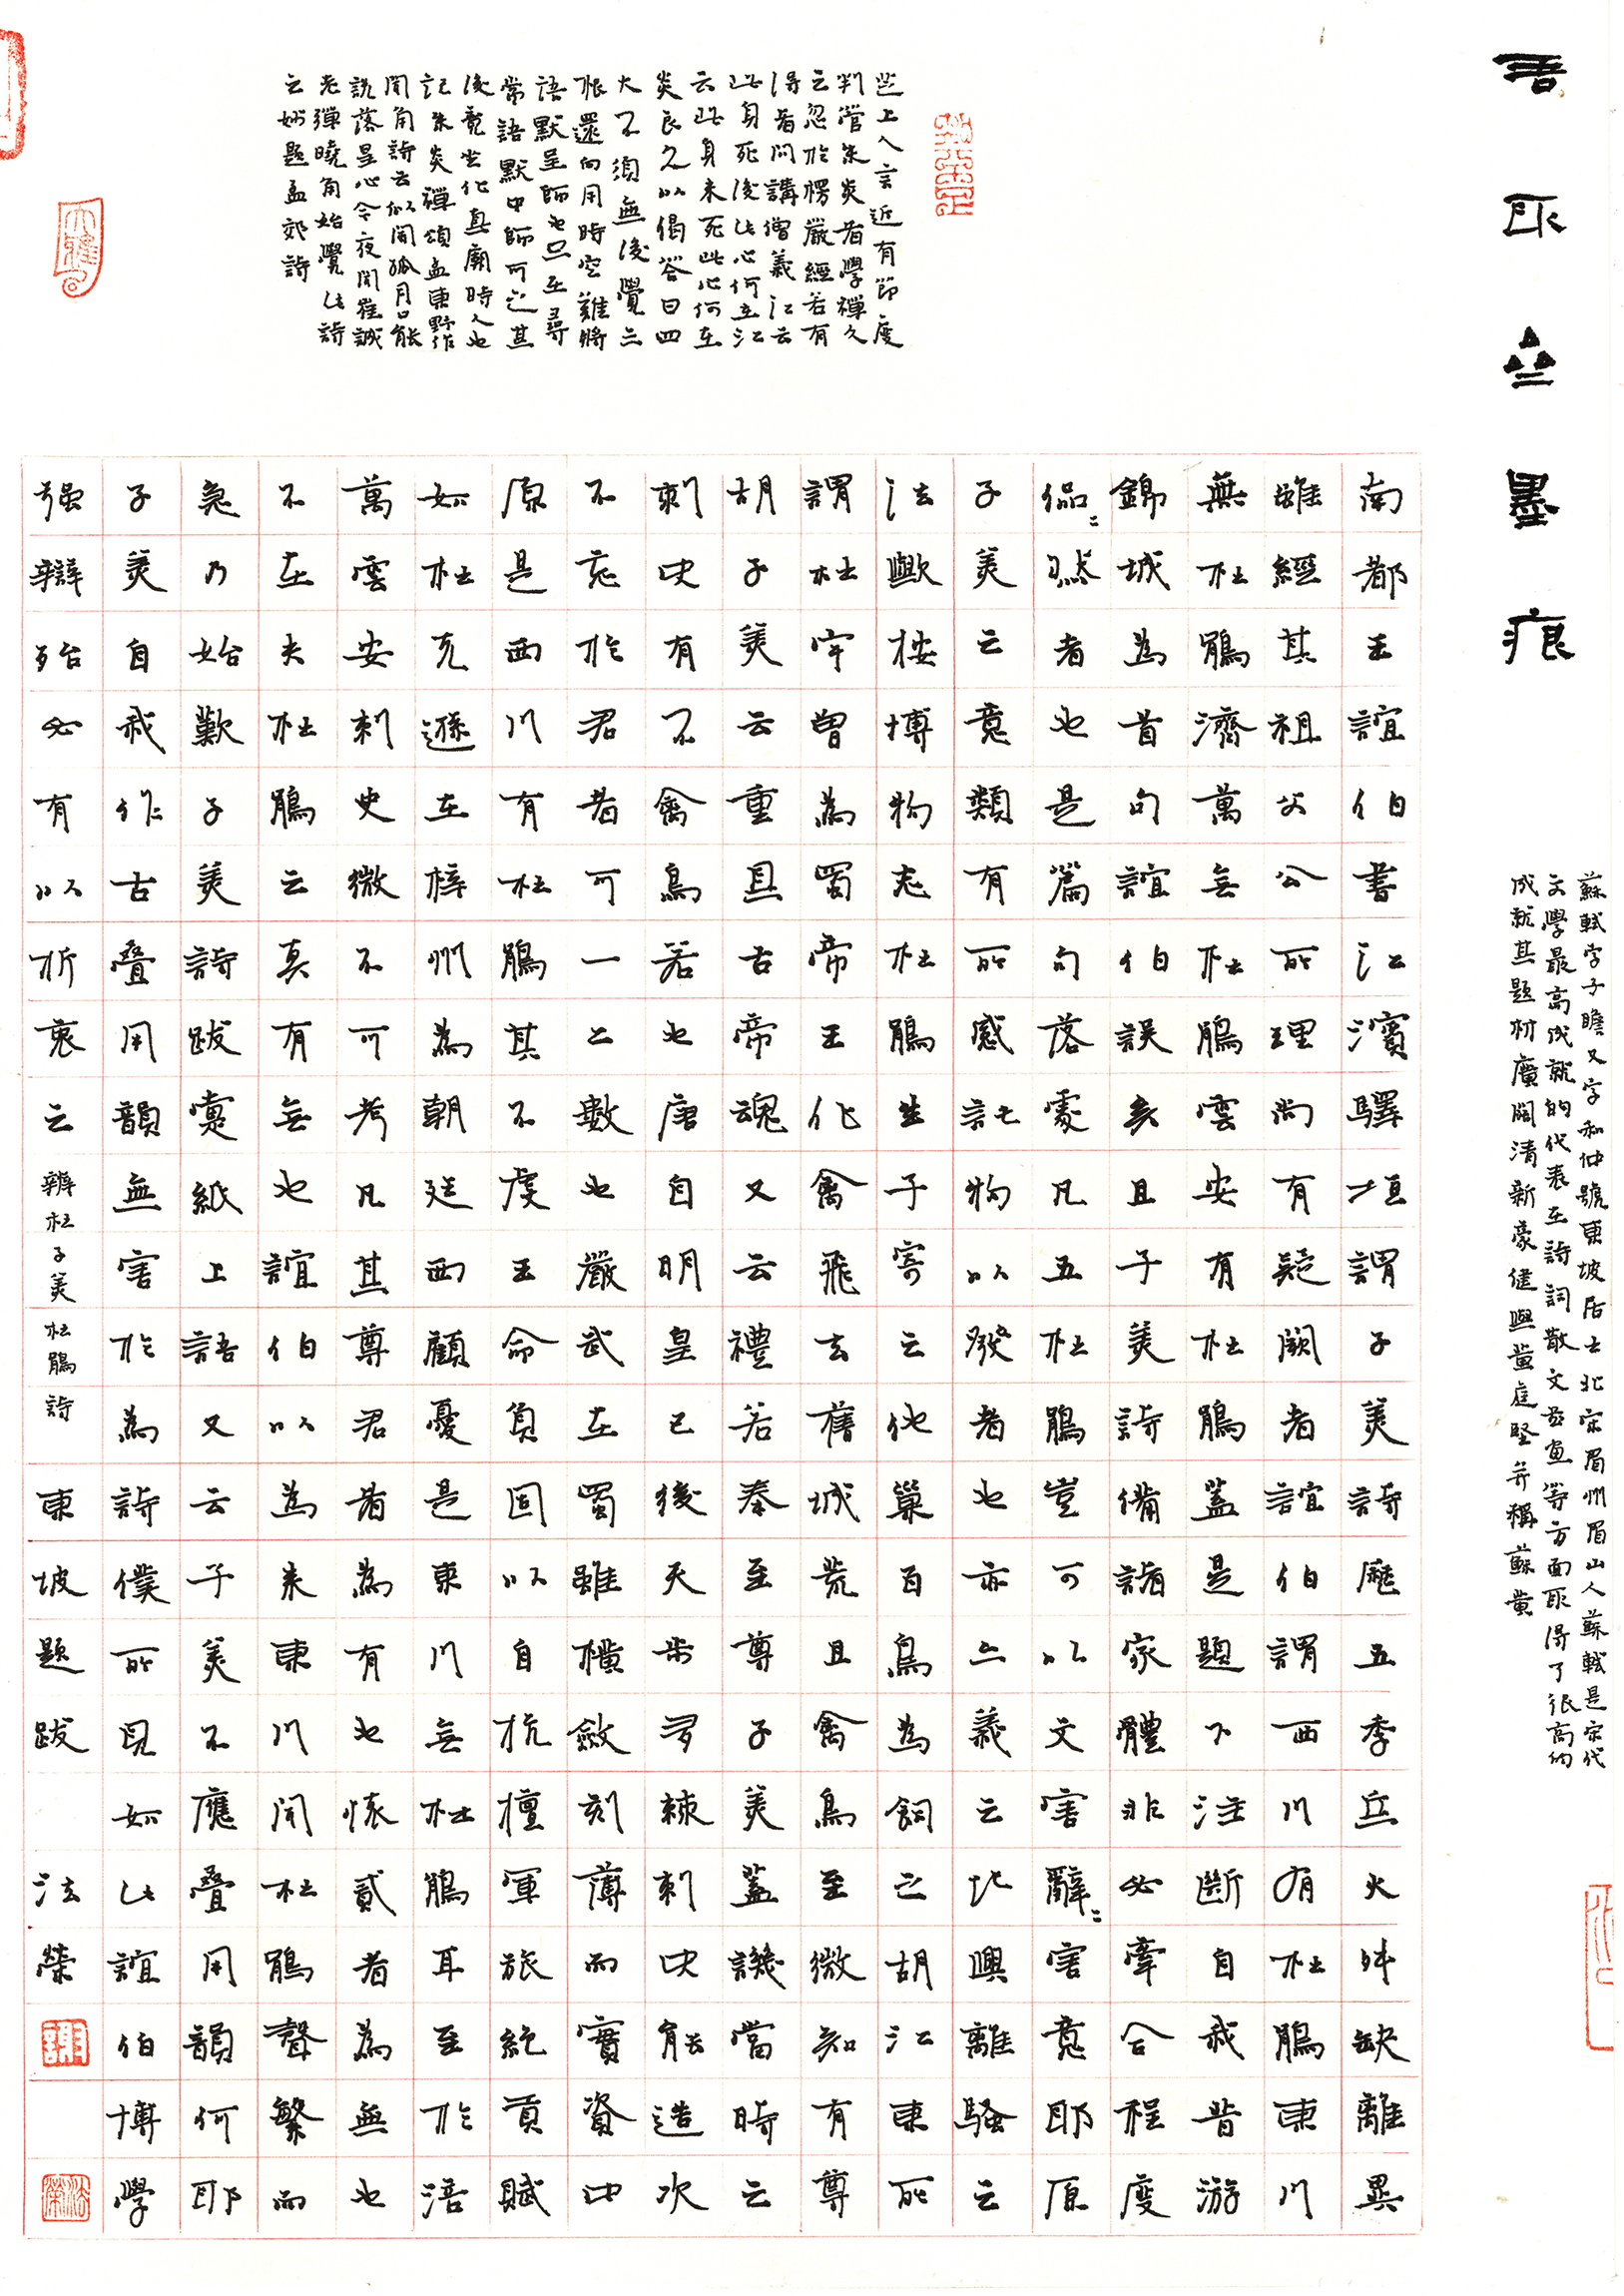 墨痕
蘇軾字子瞻又字和仲號東坡居士北宋眉州眉山人蘇軾是宋代
文學最高成就的代表在詩詞散文書畫等方面取得了很高的
成就其題材廣闊清新豪健與黃庭堅并稱蘇黃
芝上人言近有節度
判官朱炎者學禪久
之忽於楞嚴經若有
得者問講僧義江云
此身死後此心何在江
云此身未死此心何在
炎良久以偈答曰四
大不須無後覺三
根還向用時空難將
語默呈師也只在尋
常語默中師可之其
後竟坐化真廟時人也
記朱炎禪頌孟東野作
聞角詩云似開孤月口能
說落星心今夜聞崔誠
老彈曉角始覺此詩
之妙題孟郊詩
南都王誼伯書江濱驛垣謂子美詩歷五季兵火舛缺離異
雖經其祖父公所理尚有疑闕者誼伯謂西川有杜鵑東川
無杜鵑濟萬無杜鵑雲安有杜鵑蓋是題下注斷自我昔游
錦城為首句誼伯誤矣且子美詩備諸家體非必牽合程度
侃侃然者也是篇句落處凡五杜鵑豈可以文害辭辭害意耶原
子美之意類有所感託物以發者也亦六義之比興離騷之
法歟按博物志杜鵑生子寄之他巢百鳥為飼之胡江東所
謂杜宇曾為蜀帝王化禽飛去舊城荒且禽鳥至微知有尊
胡子美云重且古帝魂又云禮若奉至尊子美蓋譏當時之
刺史有不禽鳥若也唐自明皇已後天步多棘刺史能造次
不忘於君者可一二數也嚴武在蜀雖橫斂刻薄而實資中
原是西川有杜鵑其不虔王命負固以自抗擅軍旅絕貢賦
如杜克遜在梓州為朝廷西顧憂是東川無杜鵑耳至於涪
萬雲安刺史微不可考凡其尊君者為有也懷貳者為無也
不在夫杜鵑之真有無也誼伯以為來東川聞杜鵑聲繁而
急乃始歎子美詩跋疐紙上語又云子美不應疊用韻何耶
子美自我作古疊用韻無害於為詩僕所見如此誼伯博學
强辯殆必有以折衷之 辨杜子美杜鵑詩 東坡題跋 法榮
謝
法榮